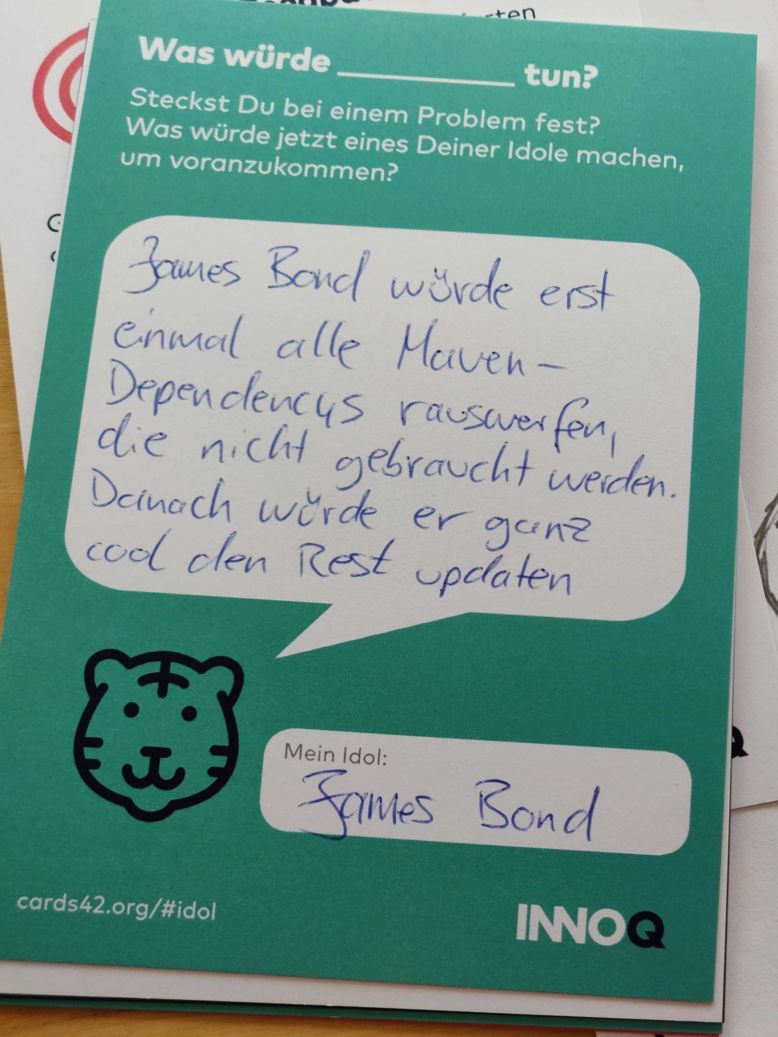 Was würde ________ tun?
Steckst Du bei einem Problem fest?
Was würde jetzt eines Deiner Idole machen,
um voranzukommen?
James Bond würde erst
einmal alle Maven-
Dependencys rauswerfen,
die nicht gebraucht werden.
Danach würde er ganz
cool den Rest updaten
Mein Idol:
James Bond
cards42.org/#idol
INNOQ